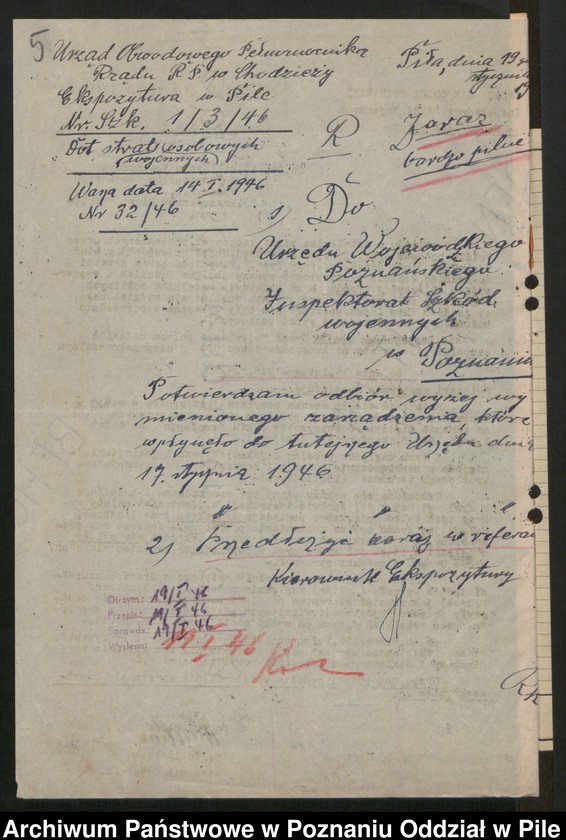 5
Urząd Obwodowego Pełnomocnika
Rządu R P. w Chodzieży
Ekspozytura w Pile
Nr. Szk. 1/3/46
Dot strat osobowych
(wojennych)
Wasza data 14 I. 1946
Nr 32/46
Piła, dnia 19
stycznia
19
R
Zaraz
bardzo pilne
1) Do
Urzędu Wojewódzkiego
Poznańskiego
Inspektorat Szkód
wojennych
w Poznaniu
Potwierdzam odbiór wyżej wy
mienionego zarządzenia, które
wpłynęło do tutejszego Urzędu dnia
17. stycznia 1946
" " "
2) Przedłożyć zaraz w refera
Kierownik Ekspozytury
Otrzym.: 19/I 46
Przepis.: 19/I 46
Sprawdz.: 19/I 46
Wysłano: 19/I 46
Archiwum Państwowe w Poznaniu Oddział w Pile